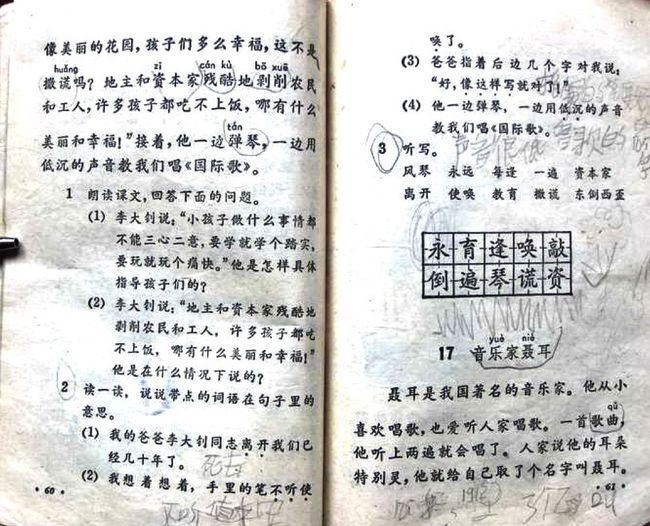 像美丽的花园，孩子们多么幸福，这不是
huǎng zī cán kù bō xuē
撒谎吗？地主和资本家残酷地剥削农民
和工人，许多孩子都吃不上饭，哪有什么
tán
美丽和幸福！”接着，他一边弹琴，一边用
低沉的声音教我们唱《国际歌》。
1 朗读课文，回答下面的问题。
(1) 李大钊说：“小孩子做什么事情都
不能三心二意，要学就学个踏实，
要玩就玩个痛快。”他是怎样具体
指导孩子们的？
(2) 李大钊说：“地主和资本家残酷地
剥削农民和工人，许多孩子都吃
不上饭，哪有什么美丽和幸福！”
他是在什么情况下说的？
2 读一读，说说带点的词语在句子里的
意思。
(1) 我的爸爸李大钊同志离开我们已
经几十年了。
死去
(2) 我想着想着，手里的笔不听使
·60·
唤了。
(3) 爸爸指着后边几个字对我说：
“好，像这样写就对了！”
(4) 他一边弹琴，一边用低沉的声音
教我们唱《国际歌》。
声音很低
3 听写。
风琴 永远 每逢 一遍 资本家
离开 使唤 教育 撒谎 东倒西歪
永育逢唤敲
倒遍琴谎资
yuè niè
17 音乐家聂耳
聂耳是我国著名的音乐家。他从小
qǔ
喜欢唱歌，也爱听人家唱歌。一首歌曲，
他听上两遍就会唱了。人家说他的耳朵
特别灵，他就给自己取了个名字叫聂耳。
·61·